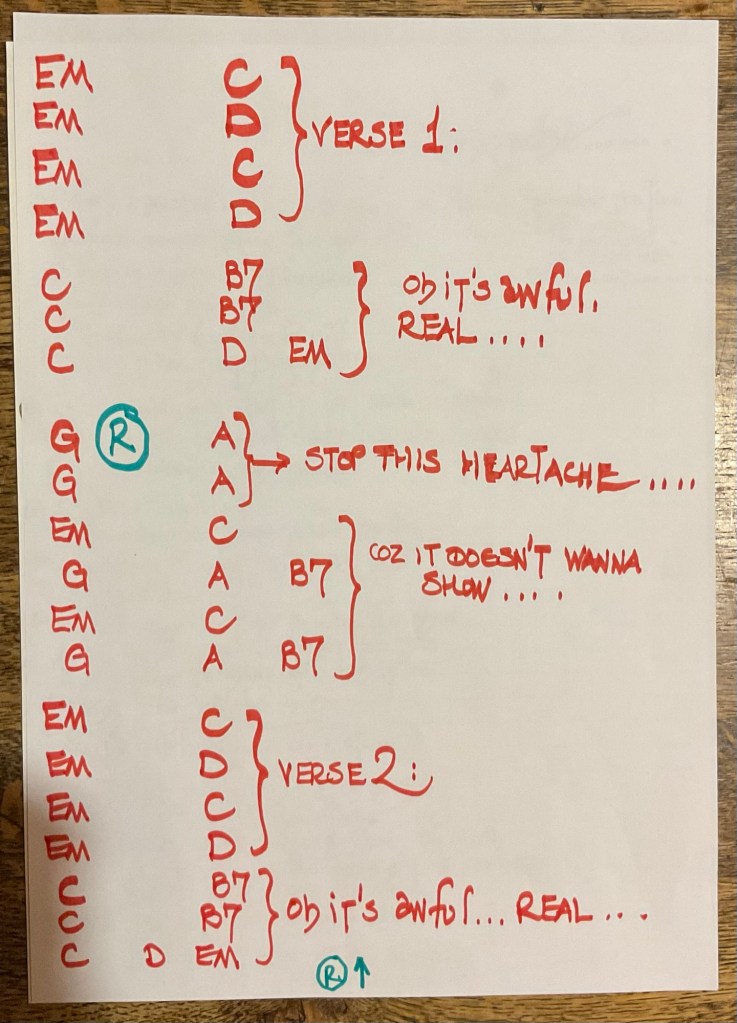 EM C
EM D VERSE 1:
EM C
EM D
C B7 Oh iT's awful.
C B7 REAL ....
C D EM
G R A
G A → STOP THIS HEARTACHE ....
EM C
G A B7 COZ IT DOESN'T WANNA
EM C SHOW ....
G A B7
EM C
EM D VERSE 2:
EM C
EM D
C B7
C B7 Oh iT's awful... REAL ...
C D EM
R ↑